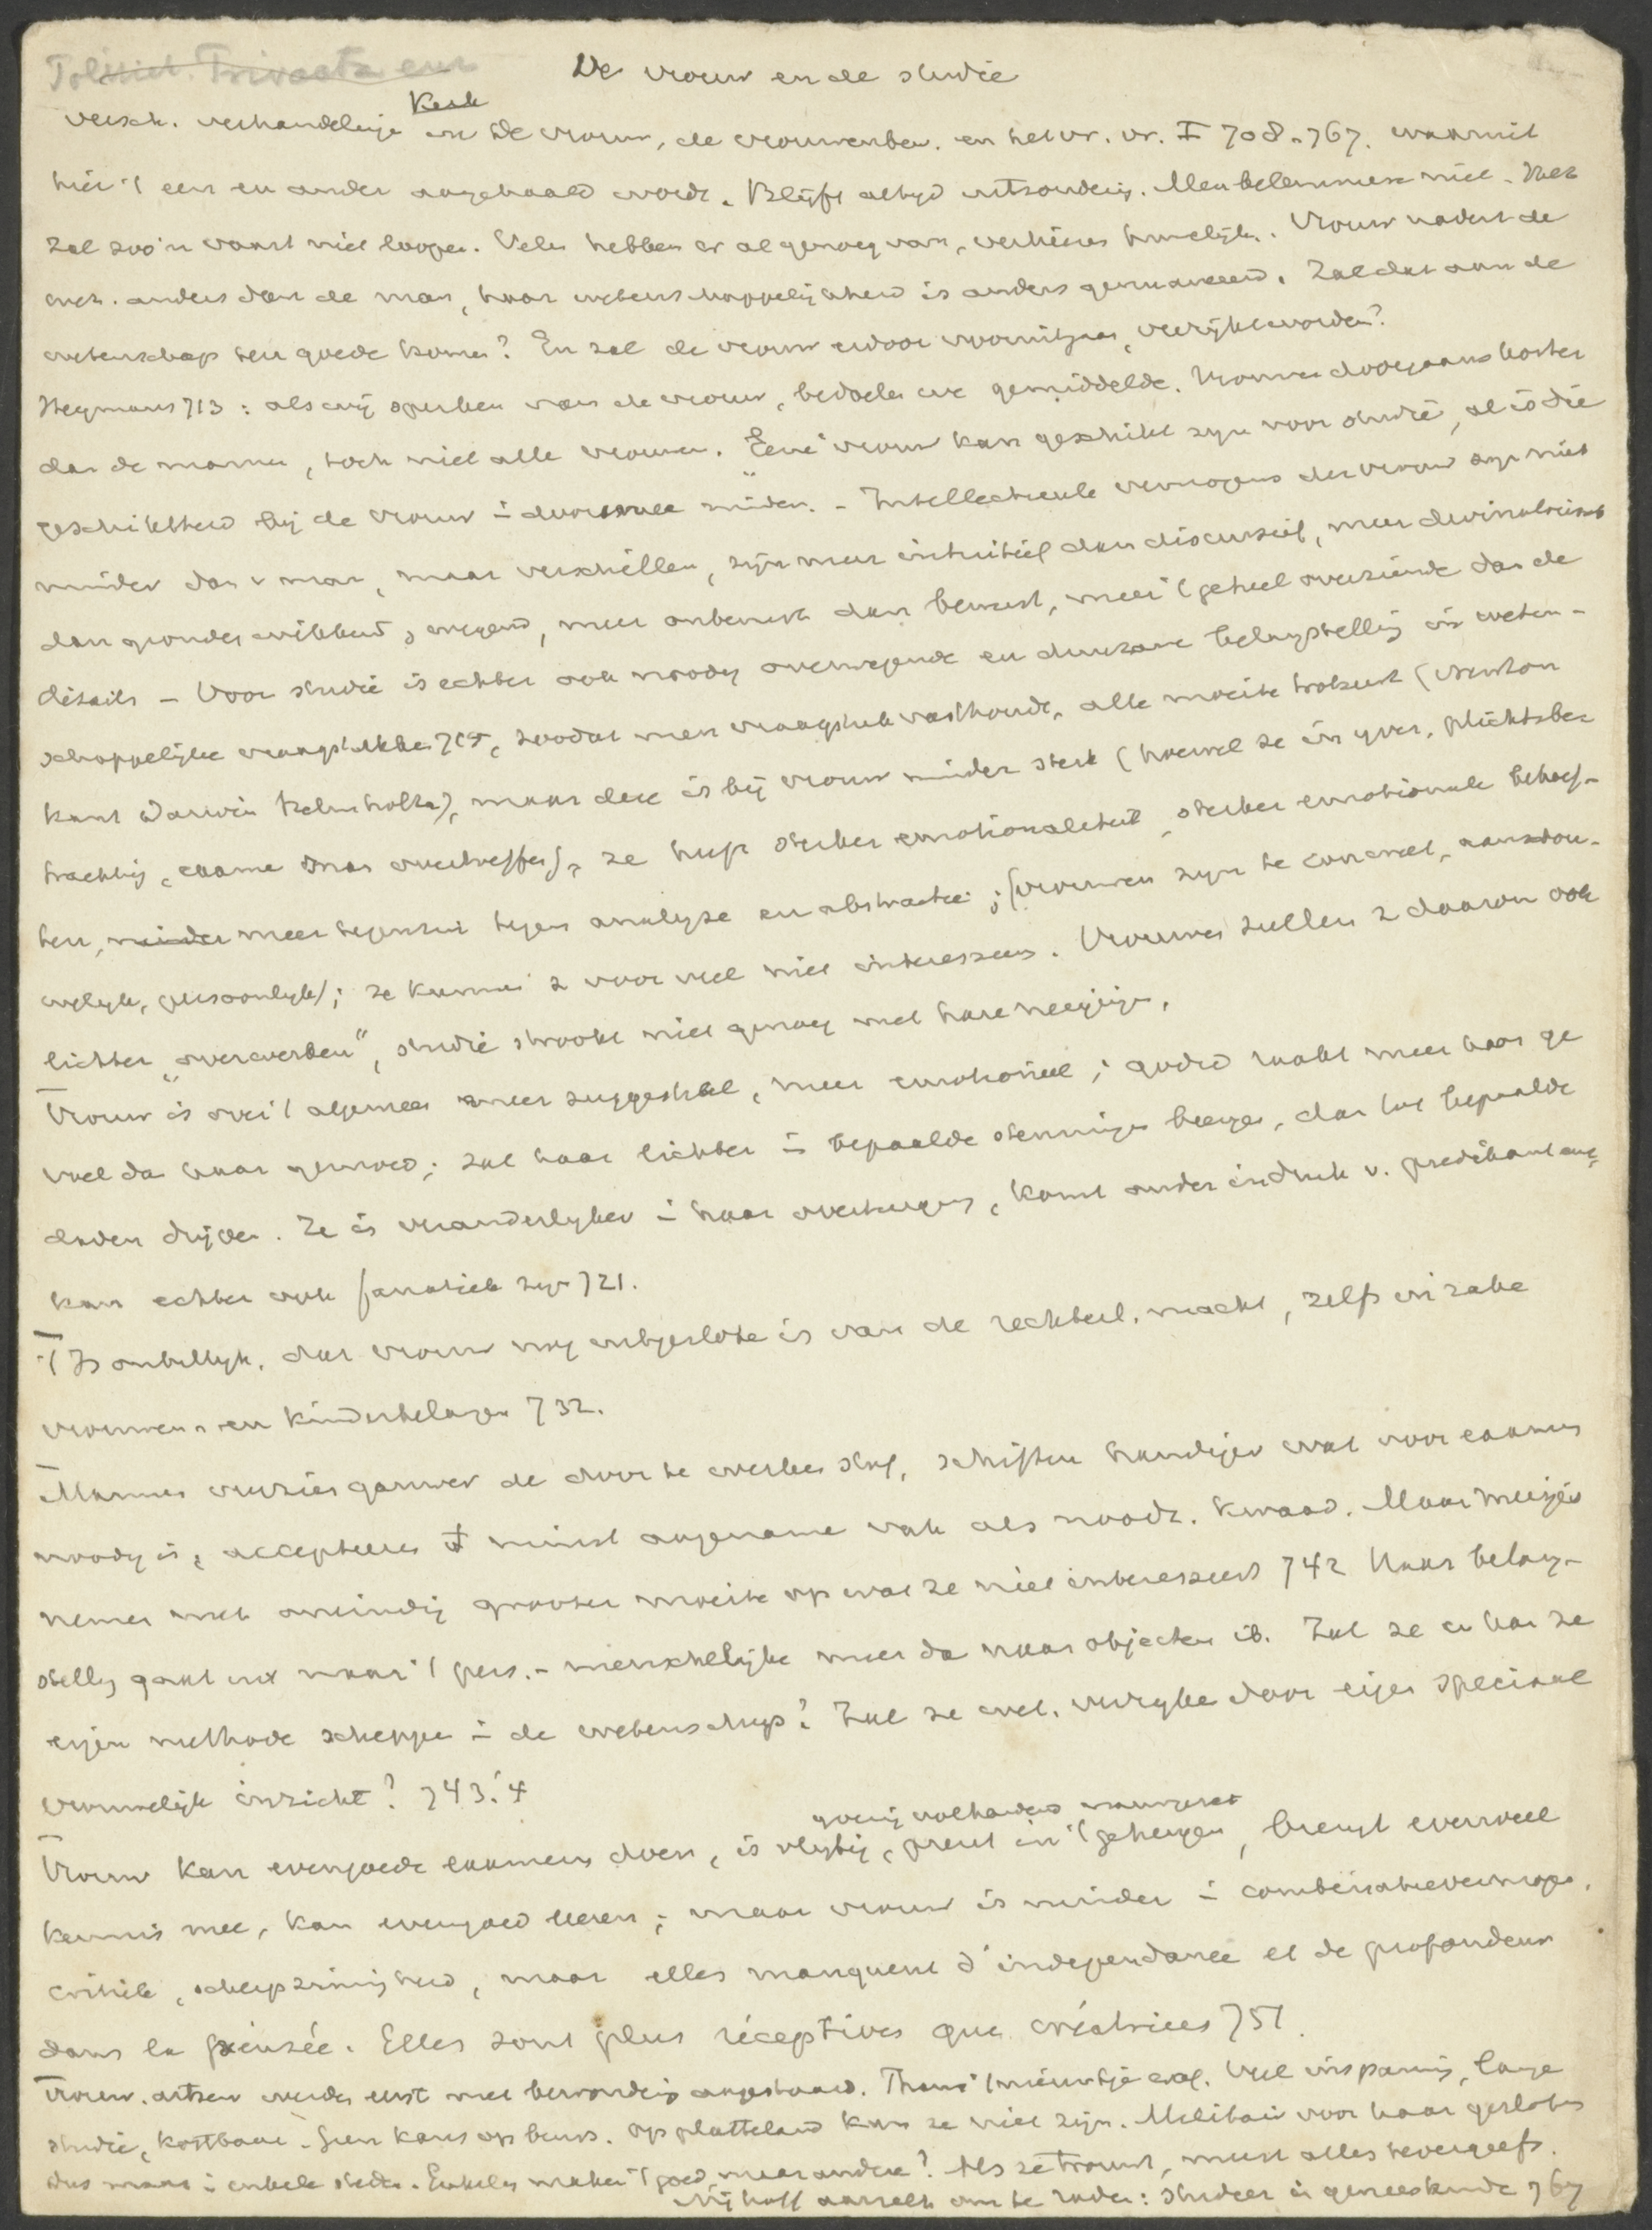 De vrouw en de studie
Versch. verhandelinge in De vrouw, de vrouwenbew. en het vr. vr. I 708-767. waaruit
hier 't een en ander aangehaald wordt. Blijft altijd uitzondering. Men belemmere niet. Het
zal zoo'n vaart niet loopen. Velen hebben er al genoeg van, verkiezen huwelijk. Vrouw nadert de
wet. anders dan de man, haar wetenschappelijkheid is anders genuanceerd. Zal dat aan de
wetenschap ten goede komen? En zal de vrouw erdoor vooruitgaan, verrijkt worden?
Heymans 713: als wij spreken van de vrouw, bedoelen we gemiddelde. Vrouwen doorgaans korter
dan de mannen, toch niet alle vrouwen. Eene vrouw kan geschikt zijn voor studie, al is die
geschiktheid bij de vrouw in doorsnee minder. - Intellectueele vermogens der vrouw zijn niet
minder dan v man, maar verschillen, zijn meer intuitief dan discursief, meer divinatorisch
dan gronden wikkend, wegend, meer onbewust dan bewust, meer 't geheel overziende dan de
détails - Voor studie is echter ook noodig overwegende en duurzame belangstelling in weten-
schappelijke vraagstukken 715, zoodat men vraagstuk vasthoudt, alle moeite trotseert (Newton
Kant Darwin Helmholtz), maar deze is bij vrouw minder sterk (hoewel ze in ijver, plichtsbe
trachting, examen man overtreffen), ze heeft sterker emotionaliteit, sterker emotionele behoef-
ten, meer tegenzin tegen analyse en abstractie; (vrouwen zijn te concreet, aanschou-
welijk, persoonlijk); ze kunnen z voor veel niet interesseeren. Vrouwen zullen z daarom ook
lichter „overwerken", studie strookt niet genoeg met hare neigingen.
Vrouw is over 't algemeen meer suggestibel, meer emotioneel; godsd raakt meer haar ge
voel dan haar gemoed; zal haar lichter in bepaalde stemmingen brengen, dan tot bepaalde
daden drijven. Ze is veranderlijker in haar overtuigingen, komt onder indruk v. predikant enz,
kan echter ook fanatiek zijn 721.
't Is onbillijk, dat vrouw nog uitgesloten is van de rechterl. macht, zelfs in zake
vrouwen- en kinderbelangen 732.
Mannen overzien gauwer de door te werken stof, schiften handiger wat voor examen
noodig is, accepteeren 't minst aangename vak als noodz. kwaad. Maar meisjes
nemen met oneindig grooter moeite op wat ze niet interesseert 742 Haar belang-
stelling gaat uit naar 't pers.- menschelijke meer dan naar objecten ib. Zal ze en kan ze
eigen methode scheppen in de wetenschap? Zal ze wet. verrijken door eigen speciaal
vrouwelijk inzicht? 743.'4
Vrouw kan evengoede examens doen, is vlijtig, prent in 't geheugen, brengt evenveel
kennis mee, kan evengoed leeren; maar vrouw is minder in combinatievermogen,
critiek, scherpzinnigheid, maar elles manquent d'indépendance et de profondeur
dans la pensée. Elles sont plus réceptives que créatrices 751.
Vrouw. artsen werden eerst met bewondering aangestaard. Thans 't nieuwtje eraf. Veel inspanning, lange
studie, kostbaar. Geen kans op beurs. Op platteland kan ze niet zijn. Militair voor haar gesloten
dus maar in enkele steden. Enkelen maken 't goed, maar andere? Als ze trouwt, meest alles tevergeefs.
Nijhoff aarzelt aan te raden: studeer in geneeskunde 767